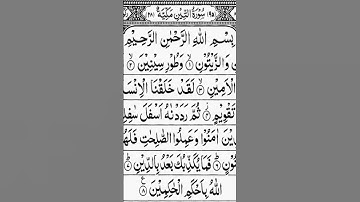 سُوْرَةُ التِّيْنِ مَكِّيَّةٌ (۲۸)
بِسْمِ اللّٰهِ الرَّحْمٰنِ الرَّحِيْمِ
وَالزَّيْتُوْنِ ۝۱ وَطُوْرِ سِيْنِيْنَ ۝۲
الْاَمِيْنِ ۝۳ لَقَدْ خَلَقْنَا الْاِنْسَا
تَقْوِيْمٍ ۝۴ ثُمَّ رَدَدْنٰهُ اَسْفَلَ سٰفِلِ
يْنَ اٰمَنُوْا وَعَمِلُوا الصّٰلِحٰتِ فَلَهُ
نُوْنٍ ۝۶ فَمَا يُكَذِّبُكَ بَعْدُ بِالدِّيْنِ ۝۷
اللّٰهُ بِاَحْكَمِ الْحٰكِمِيْنَ ۝۸